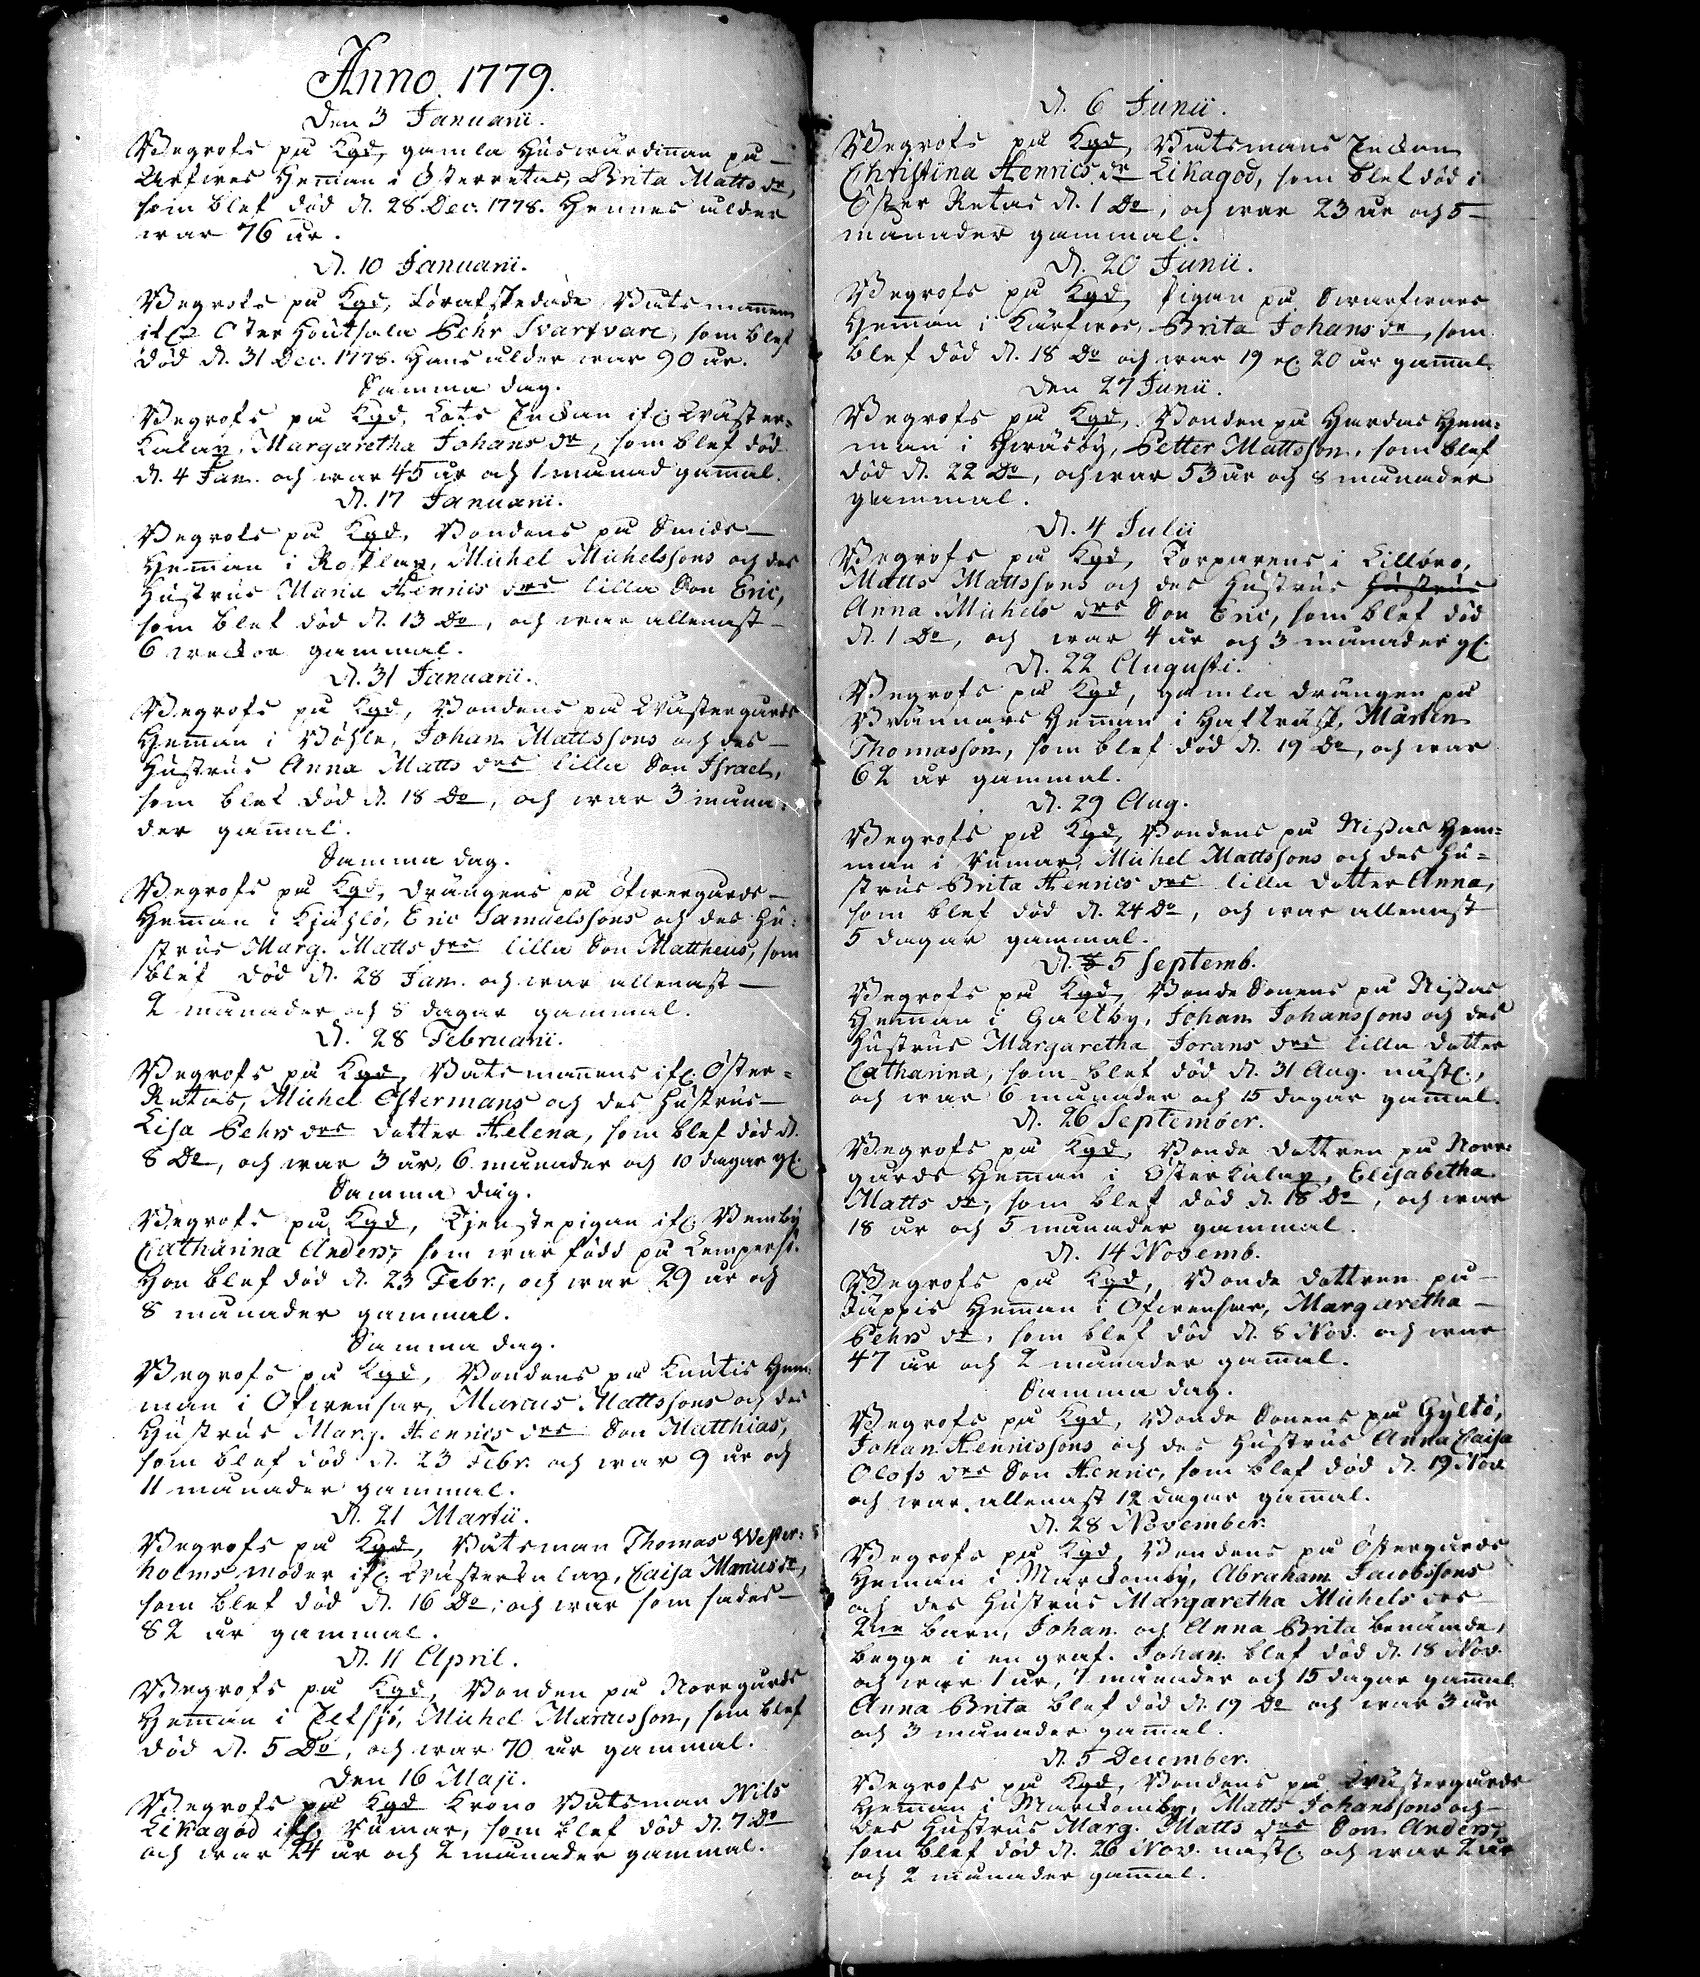 Anno 1779.
Den 3 Januarii.
Begrofs på Kgd, gamla Huswärdinnan på
Arfwes Heman i Österretais, Brita Matts dr,
som blef död d. 28 Dec. 1778. Hennes ålder
war 76 år.
d. 10 Januarii.
Begrofs på Kgd, förafskedade Båtsmannen
ifr. Öster Houtsala Pehr Svartvare, som blef
död d. 31 Dec. 1778. Hans ålder war 90 år.
Samma dag.
Begrofs på Kgd, Lots Enckan ifr. Wäster-
Kalax, Margaretha Johans dr, som blef död
d. 4 Jan. och war 45 år och 1 månad gamal.
d. 17 Januarii.
Begrofs på Kgd, Bondens på Smids
Heman i Rosklax, Michel Michelssons och des
Hustrus Maria Henrics drs lilla Son Eric,
som blef död d. 13 Do, och war allenast
6 weckor gammal.
d. 31 Januarii.
Begrofs på Kgd, Bondens på Wästergårds
Heman i Böhle, Johan Mattssons och des
Hustrus Anna Matts drs lilla Son Israel,
som blef död d. 18 Do, och war 3 måna-
der gamal.
Samma dag.
Begrofs på Kgd, drängens på Öfwergårds
Heman i Kjuhlo, Eric Samuelssons och des Hu-
strus Marg. Matts drs lilla Son Mattheus, som
blef död d. 28 Jan. och war allenast
2 månader och 8 dagar gammal.
d. 28 Februarii.
Begrofs på Kgd, Båtsmannens ifr. Öster-
Retais, Michel Östermans och des Hustrus
Lisa Pehrs drs dotter Helena, som blef död d.
8 Do, och war 3 år, 6 månader och 10 dagar gl.
Samma dag.
Begrofs på Kgd, Tjenstepigan ifr. Bemby
Catharina Anders, som war född på Kempersi.
Hon blef död d. 23 Febr., och war 29 år och
8 månader gammal.
Samma dag.
Begrofs på Kgd, Bondens på Knutis Hem-
man i Ofwensar, Marcus Mattssons och des
Hustrus Marg. Henrics drs Son Matthias,
som blef död d. 23 Febr. och war 9 år och
11 månader gammal.
d. 21 Martii.
Begrofs på Kgd, Båtsman Thomas Wester-
holms moder ifr. Wästerkalax, Caisa Marcus dr,
som blef död d. 16 Do, och war som sades
82 år gammal.
d. 11 April.
Begrofs på Kgd, Bonden på Norrgårds
Heman i Zetsjö, Michel Marcusson, som blef
död d. 5 Do, och war 70 år gammal.
Den 16 Maji.
Begrofs på Kgd Krono Båtsman Nils
Likagod ifr. Rumar, som blef död d. 7 Do
och war 24 år och 2 månader gammal.
d. 6 Junii.
Begrofs på Kgd, Båtsmans Enckan
Christina Henrics dr Likagod, som blef död i
Öster Retais d. 1 Do, och war 23 år och 5
månader gammal.
d. 20 Junii.
Begrofs på Kgd, pigan på Swarfwars
Heman i Kärfwas, Brita Johans dr, som
blef död d. 18 Do och war 19 el. 20 år gamal.
Den 27 Junii.
Begrofs på Kgd, Bonden på Hardas Hem-
man i Hwäsby, Petter Mattsson, som blef
död d. 22 Do, och war 53 år och 8 månader
gammal.
d. 4 Julii
Begrofs på Kgd, Torparens i Lillöro,
Matts Mattssons och des Hustrus Hustrus
Anna Michels drs Son Eric, som blef död
d. 1 Do, och war 4 år och 3 månader gl.
d. 22 Augusti.
Begrofs på Kgd, gamla drängen på
Brännars Heman i Hafträsk, Mårten
Thomasson, som blef död d. 19 Do, och war
62 år gammal.
d. 29 Aug.
Begrofs på Kgd, Bondens på Nissas Hem-
man i Rumar, Michel Mattssons och des Hu-
strus Brita Henrics drs lilla dotter Anna,
som blef död d. 24 Do, och war allenast
5 dagar gammal.
d. 5 Septemb.
Begrofs på Kgd, Bonde Sonens på Nissas
Heman i Galtby, Johan Johanssons och des
Hustrus Margaretha Jorans drs lilla dotter
Catharina, som blef död d. 31 Aug. nästl.,
och war 6 månader och 15 dagar gamal.
d. 26 September.
Begrofs på Kgd, Bonde dottren på Norr-
gårds Heman i Österkalax, Elisabetha
Matts dr, som blef död d. 18 Do, och war
18 år och 5 månader gammal.
d. 14 Novemb.
Begrofs på Kgd, Bonde dottren på
Jäppis Heman i Ofwensar, Margaretha
Pehrs dr, som blef död d. 8 Nov. och war
47 år och 2 månader gamal.
Samma dag.
Begrofs på Kgd, Bonde Sonens på Gyltö,
Johan Henricssons och des Hustrus Anna Caisa
Olofs drs Son Henric, som blef död d. 19 Nov.
och war allenast 12 dagar gamal.
d. 28 November.
Begrofs på Kgd, Bondens på Östergårds
Heman i Marckomby, Abraham Jacobssons
och des Hustrus Margaretha Michels drs
2ne barn, Johan och Anna Brita benämde,
begge i en graf. Johan blef död d. 18 Nov.
och war 1 år, 7 månader och 15 dagar gamal.
Anna Brita blef död d. 19 Do och war 3 år
och 3 månader gamal.
d. 5 December.
Begrofs på Kgd, Bondens på Wästergårds
Heman i Marckomby, Matts Johanssons och
des Hustrus Marg. Matts drs Son Anders,
som blef död d. 26 Nov. nästl. och war 2 år
och 2 månader gamal.